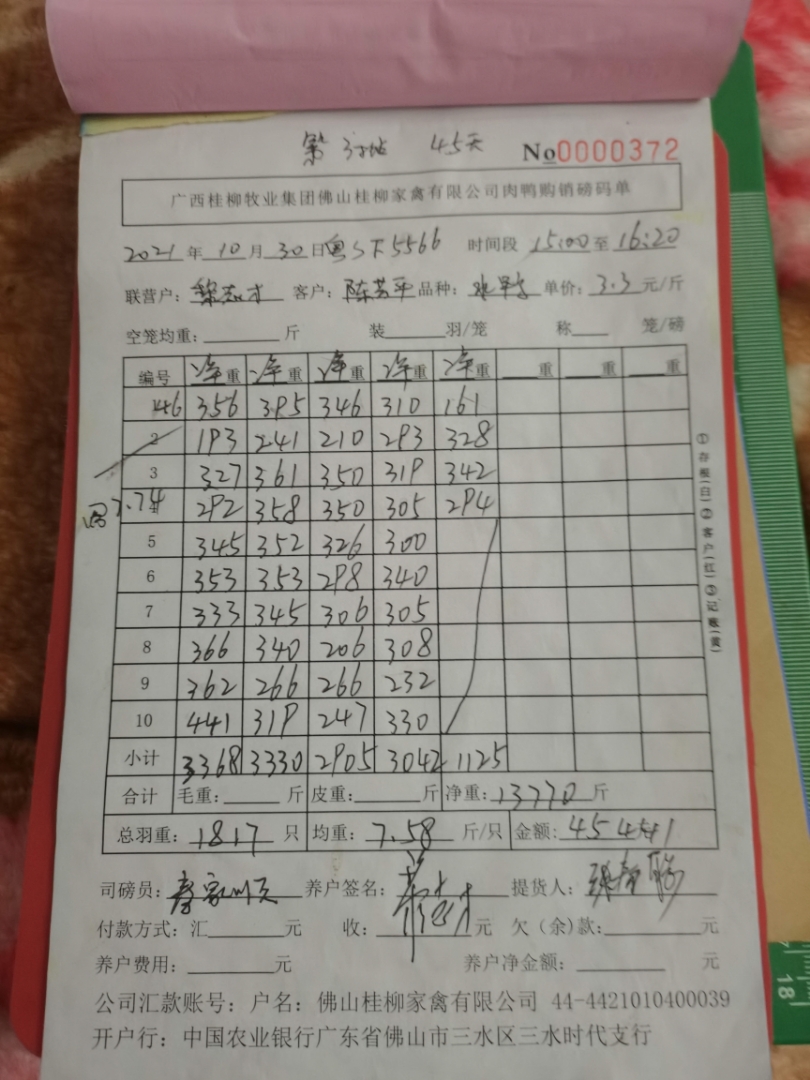 第 3 45天 No0000372
广西桂柳牧业集团佛山桂柳家禽有限公司肉鸭购销磅码单
2021年10月30日粤 5566 时间段15:00至16:20
联营户：黎志才 客户：陈芳平 品种： 单价：3.3元/斤
空笼均重：斤 装羽/笼 称笼/磅
编号 净重 净重 净重 净重 净重 重 重 重
146 356 395 346 310 161
2 193 241 210 293 328
3 327 361 350 319 342
7.74 292 358 350 305 294
5 345 352 326 300
6 353 353 298 340
7 333 345 306 305
8 366 340 206 308
9 362 266 266 232
10 441 319 247 330
小计 3368 3330 2905 3042 1125
合计 毛重：斤 皮重：斤 净重：13770斤
总羽重：1817只 均重：7.58斤/只 金额：45441
司磅员： 养户签名： 提货人：
付款方式：汇元 收：元 欠（余）款：元
养户费用：元 养户净金额：元
公司汇款账号：户名：佛山桂柳家禽有限公司 44-4421010400039
开户行：中国农业银行广东省佛山市三水区三水时代支行
①存根(白)②客户(红)③记账(黄)
18